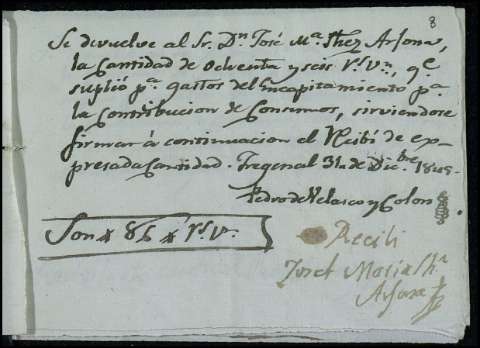 8
Se devuelve al Sr. Dn José Mª. Shez Arjona,
la Cantidad de Ochenta y seis Rs. Vn., qe
suplió pª gastos del Encapitamiento pª
la Contribucion de Consumos, sirviendose
firmar á continuacion el Recibí de ex-
presada Cantidad. Fregenal 31 de Dicbre
Pedro de Velasco y Colon
Son # 86 # Rs. Vn.
Recibi
José Maria Shz
Arjona